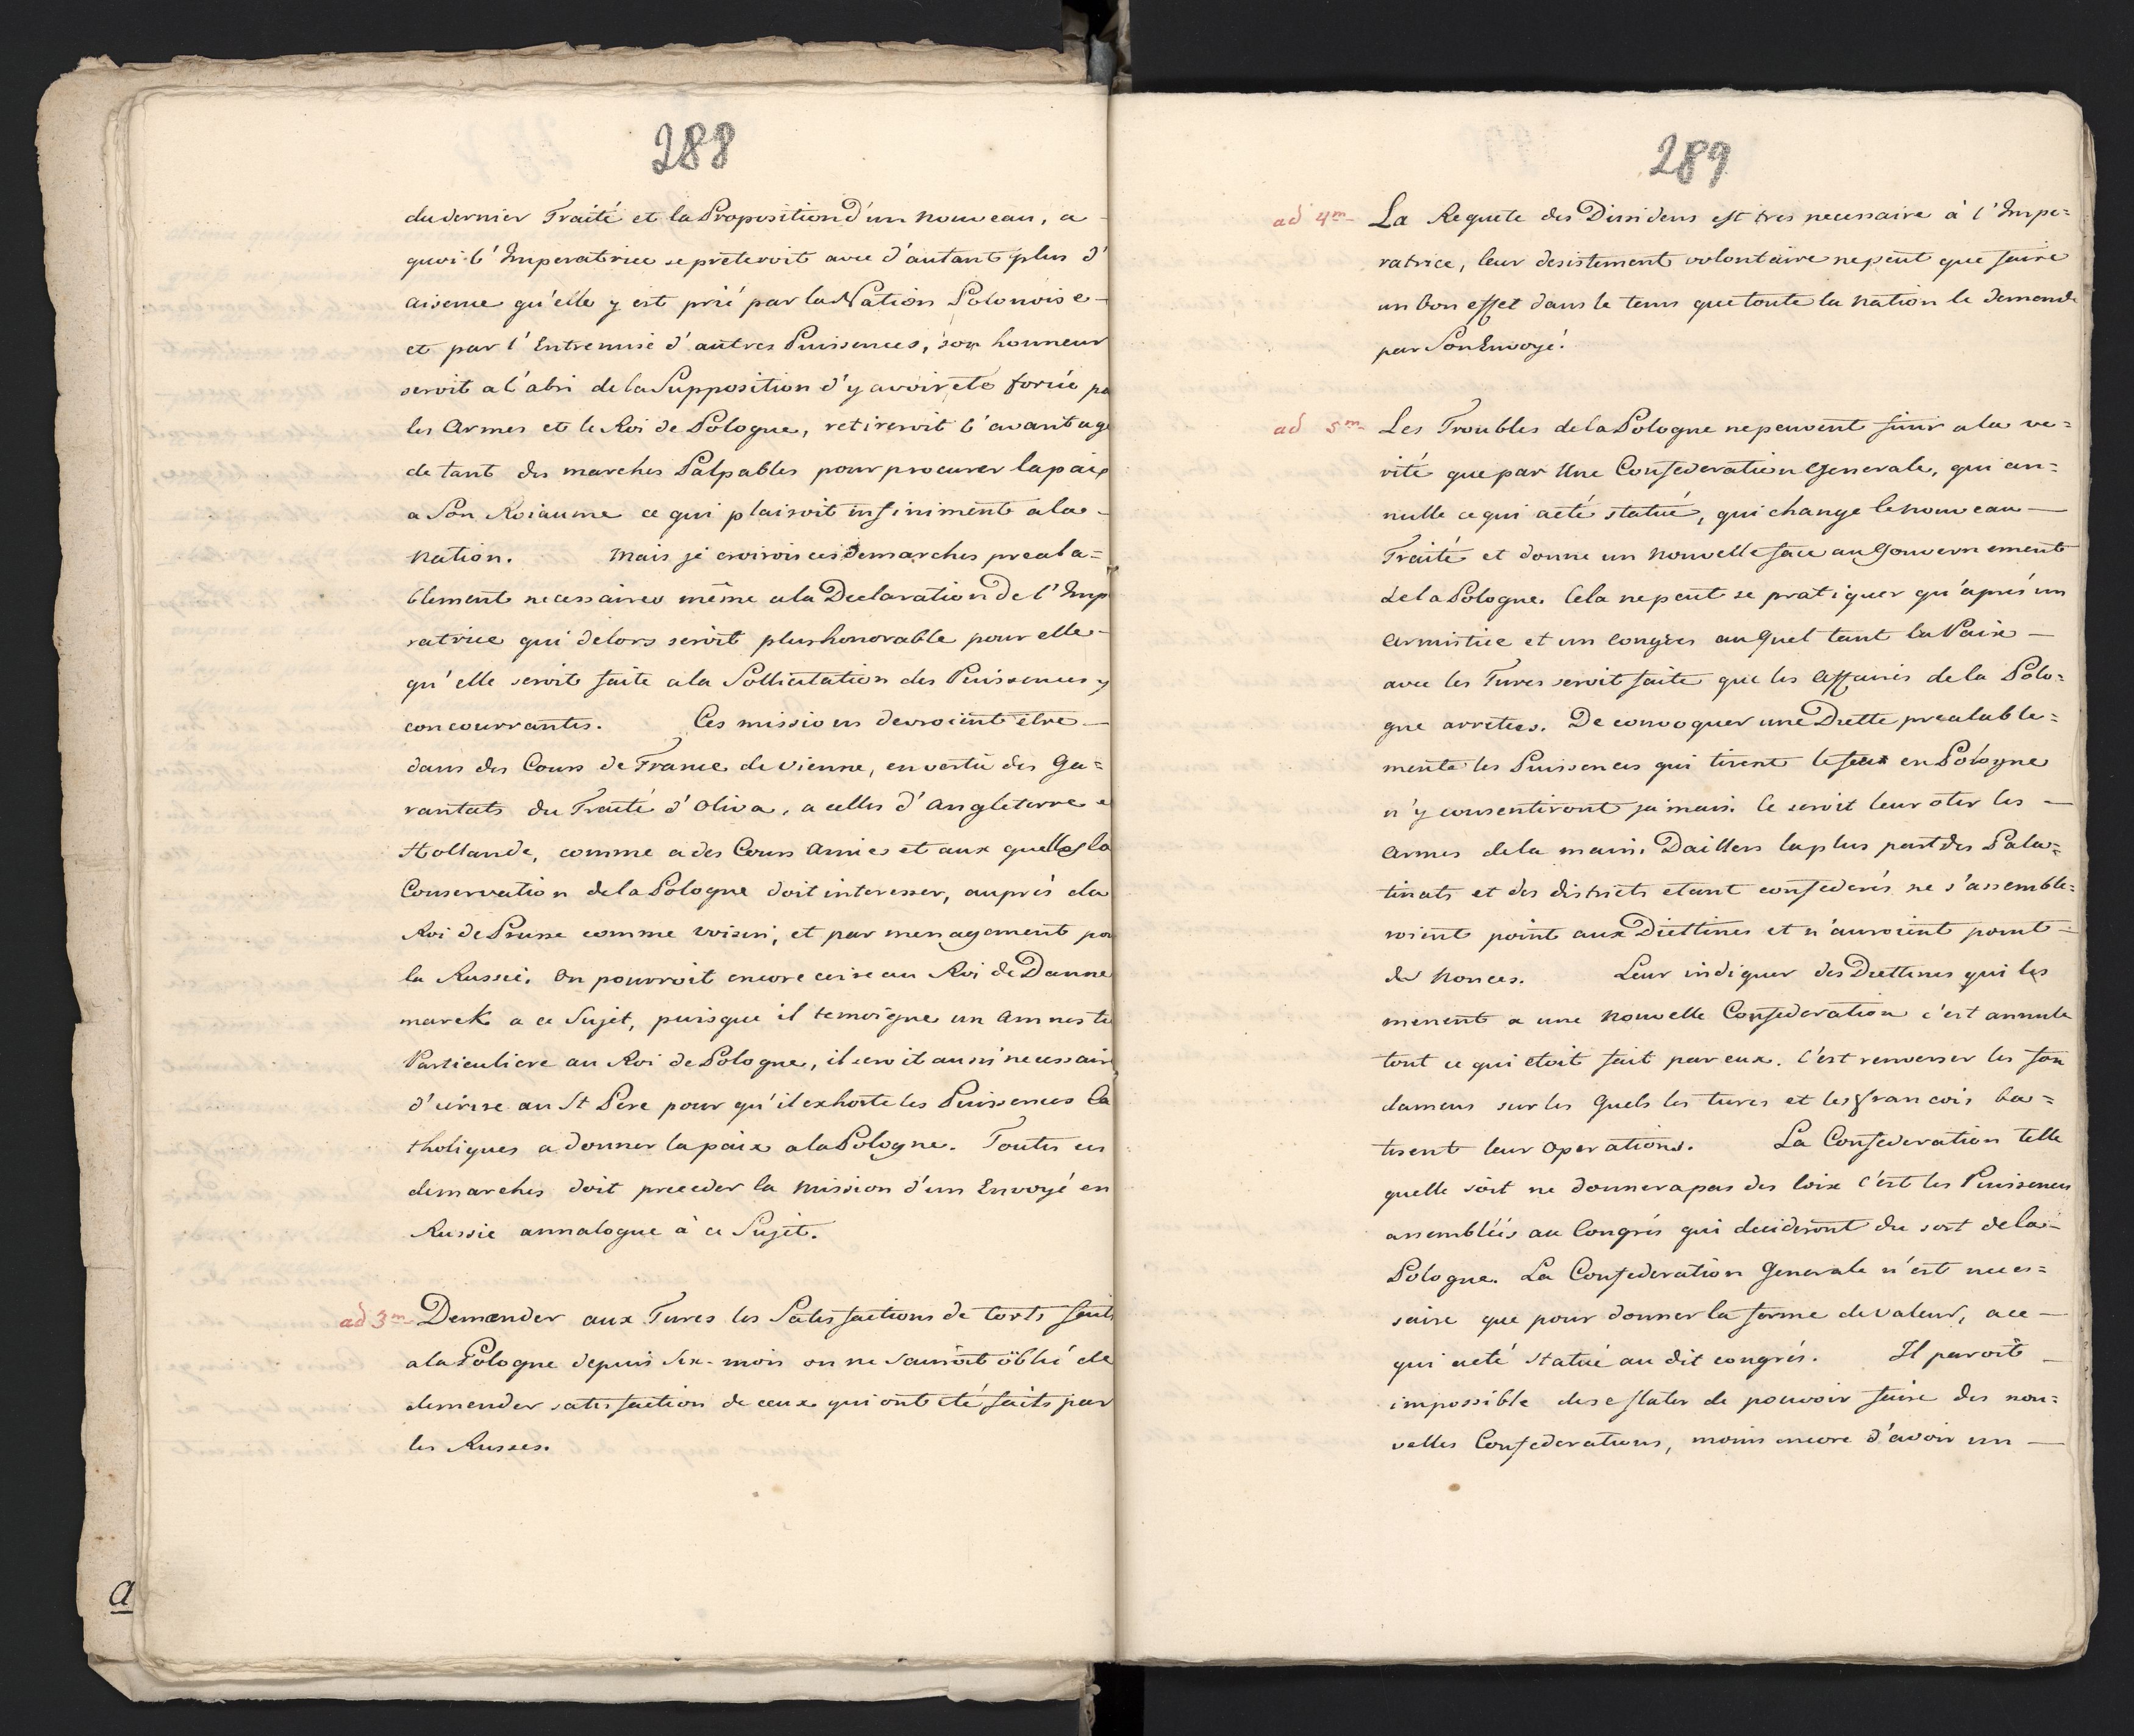 288
du dernier Traité et la Proposition d'un nouveau, a
quoi l'Imperatrice se preteroit avec d'autant plus d'
aisence qu'elle y est prié par la Nation Polonoise
et par l'Entremise d'autres Puissences, son honneur
seroit a l'abri de la Supposition d'y avoir eté forcée pa
les Armes et le Roi de Pologne, retireroit l'avantage
de tant des marches Palpables pour procurer la paix
a Son Roiaume ce qui plairoit infiniment a la
Nation. Mais je croirois ces demarches preala=
blement necessaires même a la Declaration de l'Imp
ratrice qui delors seroit plus honorable pour elle
qu'elle seroit faite a la Sollicitation des Puissences y
concourrantes. Ces missions devroient être
dans des Cours de France de Vienne, en vertu des Ga=
rantats du Traité d'Oliva, a celles d'Angleterre e
Hollande, comme a des Cours Amies et aux quelles la
Conservation de la Pologne doit interesser, auprés du
Roi de Prusse comme voisin, et par menagement po
la Russie. On pourroit encore ecrire au Roi de Danne
marck a ce Sujet, puisque il temoigne un Amneste
Particuliere au Roi de Pologne, il seroit aussi necessaire
d'ecrire au St Pere pour qu'il exhorte les Puissences Ca
tholiques a donner la paix a la Pologne. Toutes ces
demarches doit preceder la Mission d'un Envoyé en
Russie annalogue à ce Sujet.
ad 3m Demander aux Turcs les Satisfactions de torts faits
a la Pologne depuis Six mois on ne Sauroit oblié de
demender satisfaction de ceux qui ont eté faits par
les Russes.
a
289
ad 4m La Requete des Dissidens est tres necessaire à l'Impe=
ratrice, leur desistement volontaire ne peut que faire
un bon effet dans le tems que toute la Nation le demende
par Son Envoyé.
ad 5m Les Troubles de la Pologne ne peuvent finir a la ve=
rité que par Une Confederation Generale, qui an=
nulle ce qui a eté statué, qui change le nouveau
Traité et donne un nouvelle face au Gouvernement
de la Pologne. Cela ne peut se pratiquer qu'aprés un
Armistice et un Congres au quel tant la Paix
avec les Turcs seroit faite que les Affaires de la Polo=
gne arretées. De convoquer une Diette prealable=
ment les Puissences qui tirent le feux en Pologne
n'y consentiront jamais. Ce seroit leur oter les
Armes de la main. Daillers la plus part des Pala=
tinats et des districts etant confederés ne s'assemble=
roient point aux Diettines et n'auroient point
de Nonces. Leur indiquer des Diettines qui les
menent a une Nouvelle Confederation c'est annule
tout ce qui etoit fait par eux. C'est renverser les fon
damens sur les Quels les turcs et les francois ba=
tisent leur Operations. La Confederation telle
quelle soit ne donnera pas des loix c'est les Puissences
assemblées au Congrés qui decideront du sort de la
Pologne. La Confederation Generale n'est neces=
saire que pour donner la forme de Valeur, a ce
qui a eté statué au dit congrés. Il paroit
impossible de se flater de pouvoir faire des nou=
velles Confederations, moins encore d'avoir un